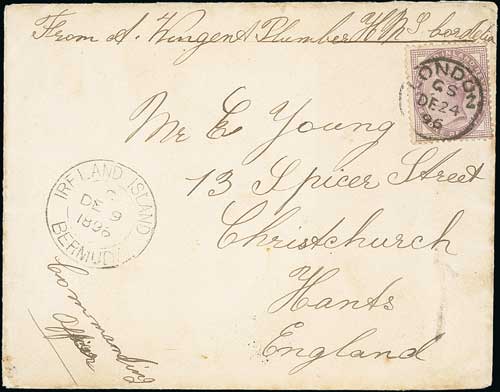 From A. Wingent Plumber HMS Cordelia
LONDON
GS
DE 24
96
Mr E Young
13 Spicer Street
Christchurch
Hants
England
IRELAND ISLAND
C
DE 9
1896
BERMUDA
Commanding
Officer